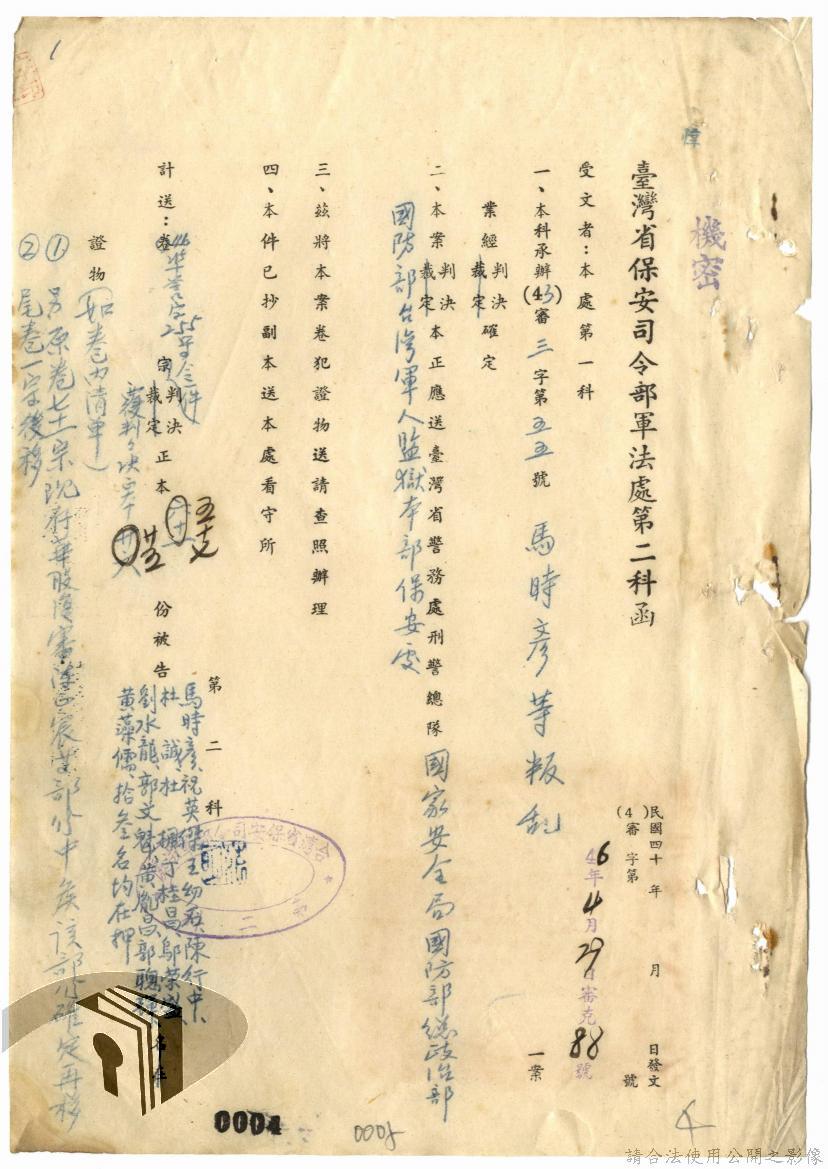 機密
臺灣省保安司令部軍法處第二科函
民國四十 年 月 日發文
(4 )審 字第 號
46年4月29日審克88號
受文者：本處第一科
一、本科承辦(43)審三字第五五號 馬時彥等叛亂 一案
業經判決裁定確定
二、本案判決裁定本正應送臺灣省警務處刑警總隊國家安全局國防部總政治部
國防部台灣軍人監獄本部保安處
三、茲將本案卷犯證物送請查照辦理
四、本件已抄副本送本處看守所
計送：卷 宗判決裁定正本 份被告
馬時彥、祝英傑、王幼 陳行中、
杜誠、杜 于桂昌、鄔榮
劉水龍、郭文 黃胤昌、郭聰
黃藻儒、拾叁名均在押
證物(如卷內清單)
覆判
五支
第二科
臺灣省保安司
①另原卷七 宗現 華股 審 部份中 俟該部份確定再移
②尾卷一宗後移
0004
0005
1
請合法使用公開之影像